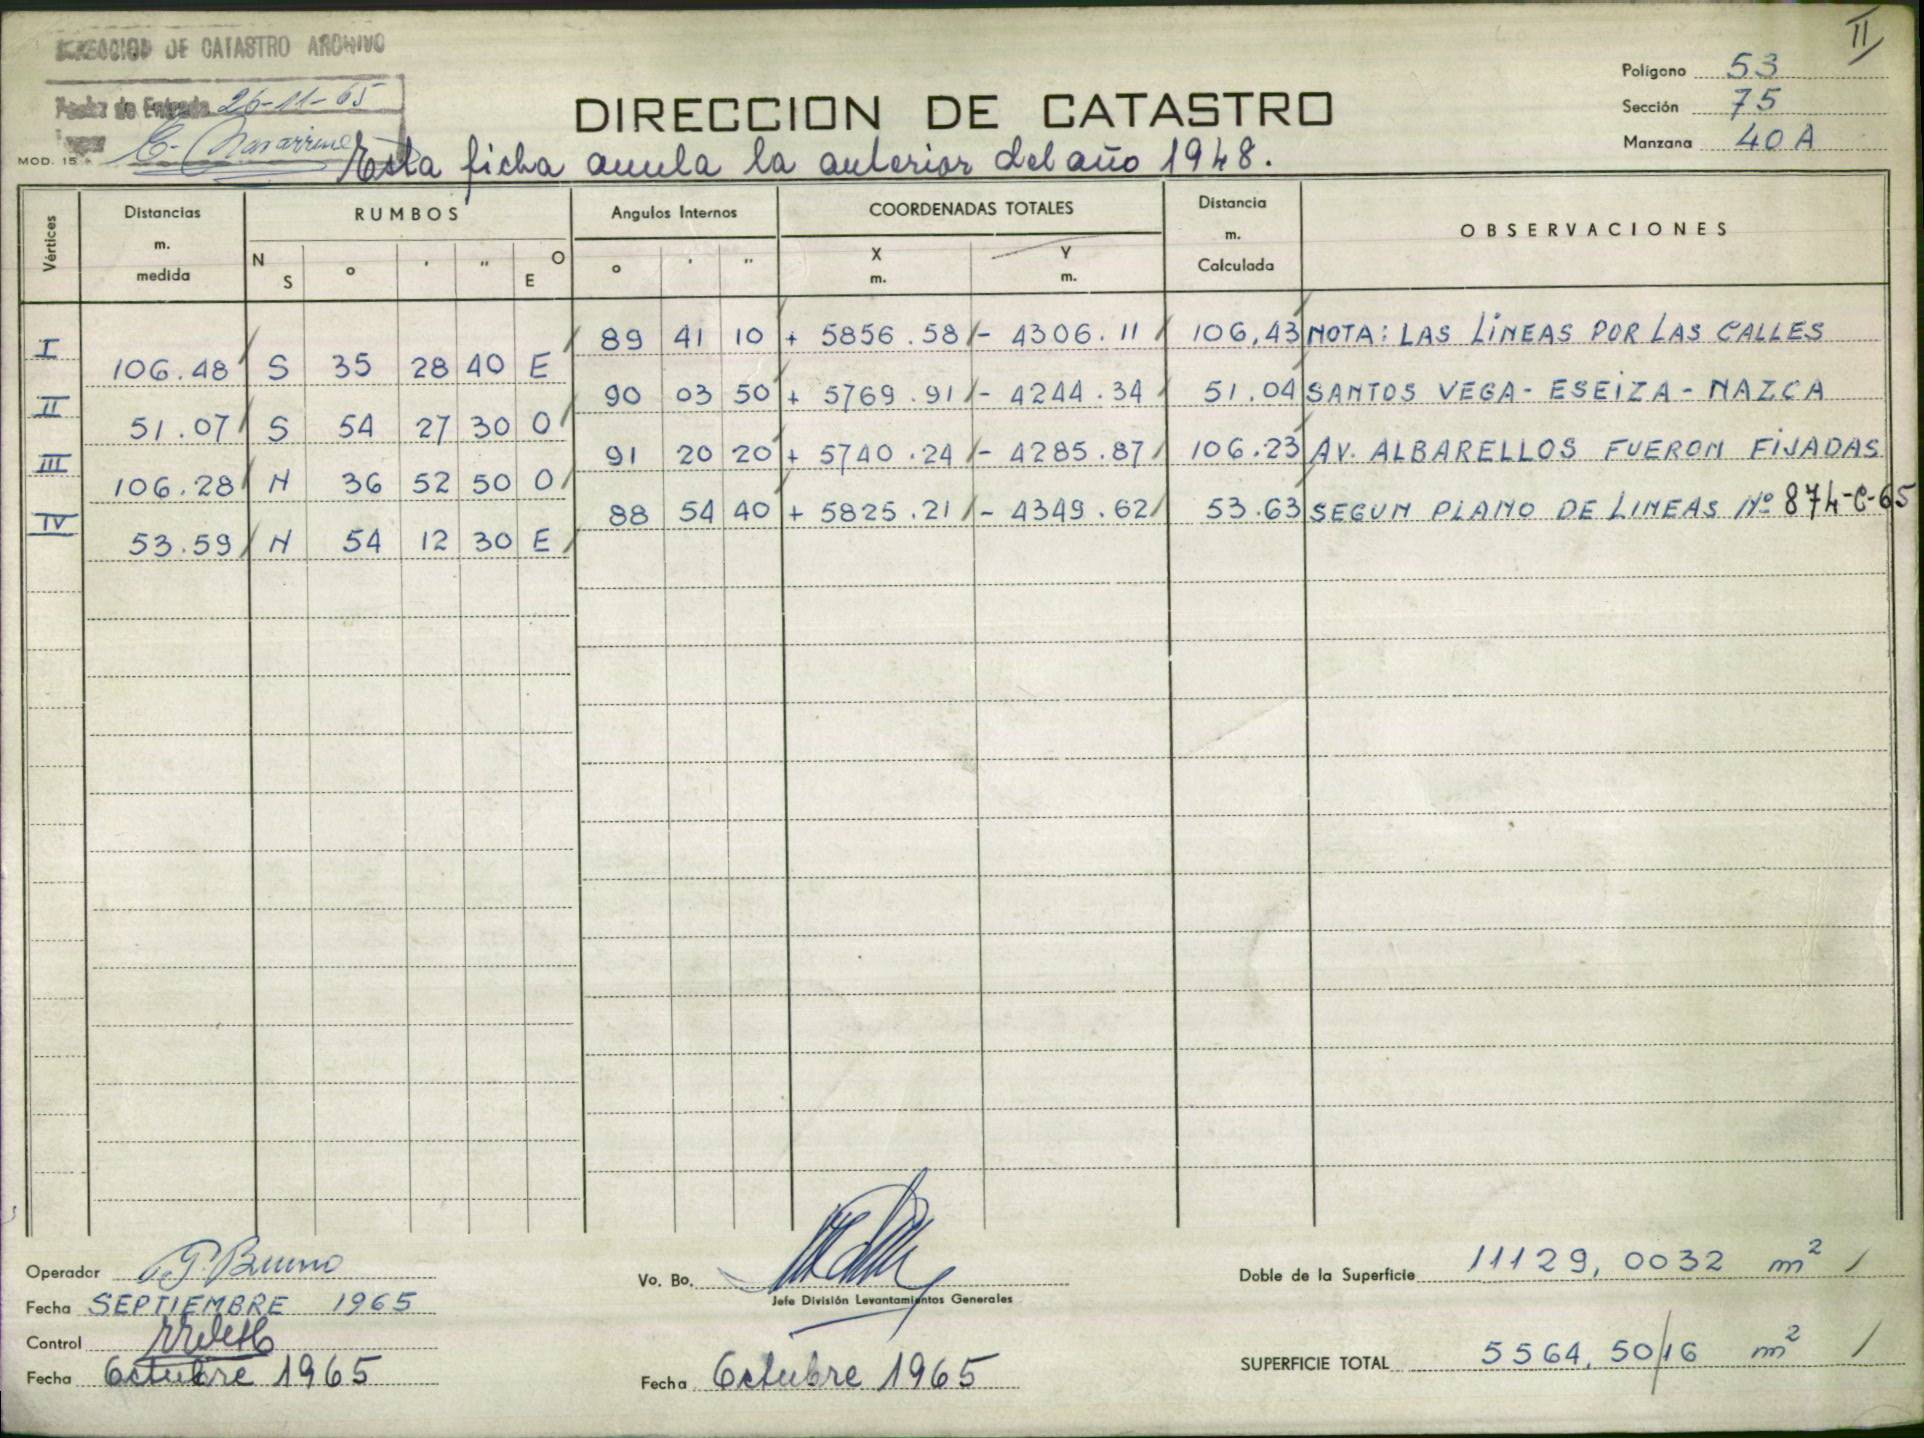 DIRECCION DE CATASTRO ARCHIVO
Fecha de Entrada 26-11-65
MOD. 15
II
DIRECCION DE CATASTRO
Esta ficha anula la anterior del año 1948.
Polígono 53
Sección 75
Manzana 40 A
Vértices Distancias m. medida RUMBOS Angulos Internos COORDENADAS TOTALES Distancia m. Calculada OBSERVACIONES
N S ° ' " O E ° ' " X m. Y m.
I 89 41 10 + 5856.58 - 4306.11 106,43 NOTA: LAS LINEAS POR LAS CALLES
106.48 S 35 28 40 E
II 90 03 50 + 5769.91 - 4244.34 51.04 SANTOS VEGA - ESEIZA - NAZCA
51.07 S 54 27 30 O
III 91 20 20 + 5740.24 - 4285.87 106.23 AV. ALBARELLOS FUERON FIJADAS
106.28 N 36 52 50 O
IV 88 54 40 + 5825.21 - 4349.62 53.63 SEGUN PLANO DE LINEAS Nº 874-C-65
53.59 N 54 12 30 E
Operador
Fecha SEPTIEMBRE 1965
Control
Fecha Octubre 1965
Vo. Bo.
Jefe División Levantamientos Generales
Fecha Octubre 1965
Doble de la Superficie 11129,0032 m²
SUPERFICIE TOTAL 5564,50/16 m²